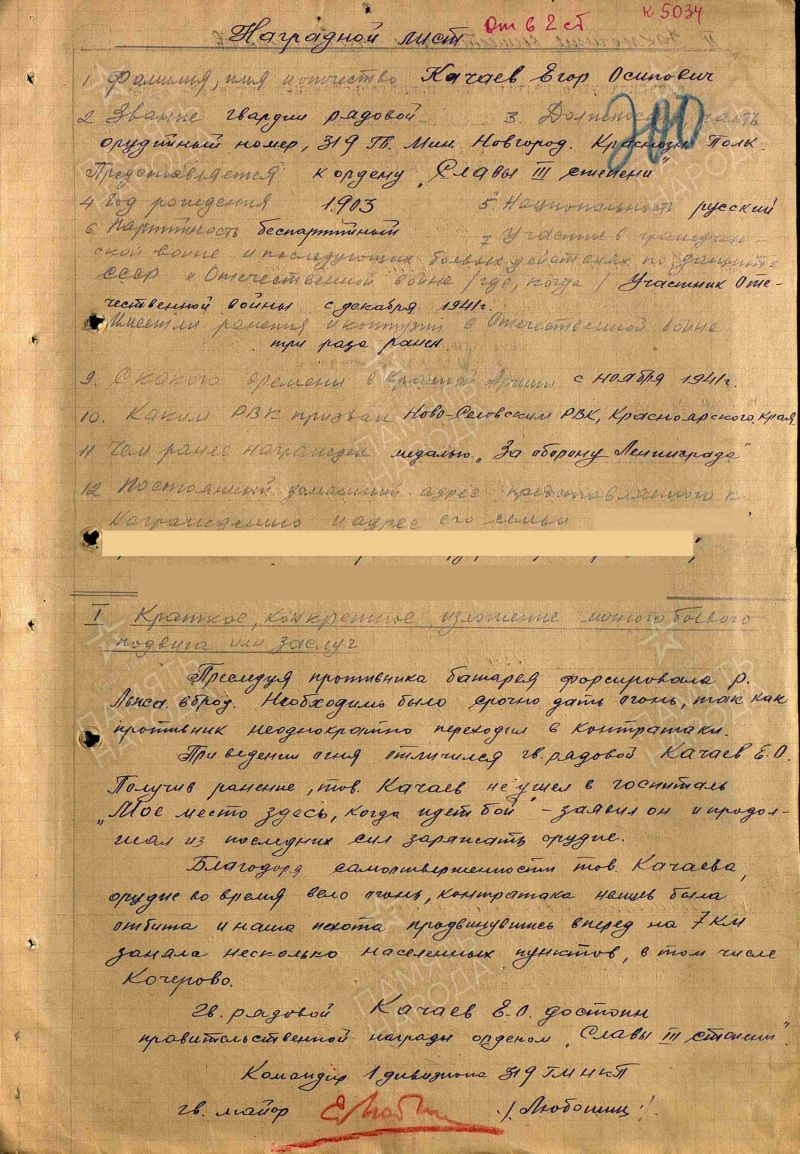 От в 2 ст к 5034
Наградной лист
1 Фамилия, имя и отчество Качаев Егор Осипович
2 Звание гвардии рядовой 3. Должность, часть
орудийный номер, 319 Гв. Мин. Новгород. Краснозн Полк.
Представляется к ордену „Славы III степени"
4 Год рождения 1903 5 Национальность русский
6 Партийность беспартийный 7 Участие в граждан
ской войне и последующих боевых действиях по защите
СССР и Отечественной войне /где, когда/ Участник Оте-
чественной войны с декабря 1941г.
8 Имеет ли ранения и контузии в Отечественной войне
три раза ранен
9. С какого времени в Красной Армии с ноября 1941г.
10. Каким РВК призван Ново-Селовским РВК, Красноярского края
11 Чем ранее награжден медалью „За оборону Ленинграда"
12 Постоянный домашний адрес представляемого к
награждению и адрес его семьи
I Краткое, конкретное изложение личного боевого
подвига или заслуг
Преследуя противника батарея форсировала р.
вброд. Необходимо было срочно дать огонь, так как
противник неоднократно переходил в контратаки.
При ведении огня отличился гв. рядовой Качаев Е.О.
Получив ранение, тов. Качаев не ушел в госпиталь
„Мое место здесь, когда идет бой" - заявил он и продол-
жал из последних сил заряжать орудие.
Благодаря самоотверженности тов. Качаева,
орудие во время вело огонь, контратака немцев была
отбита и наша пехота продвинувшись вперед на 7 км
заняла несколько населенных пунктов, в том числе
Кочерово.
Гв. рядовой Качаев Е.О. достоин
правительственной награды орденом „Славы III степени".
Командир 1 дивизиона 319 ГМНКП
гв. майор /Любошиц/